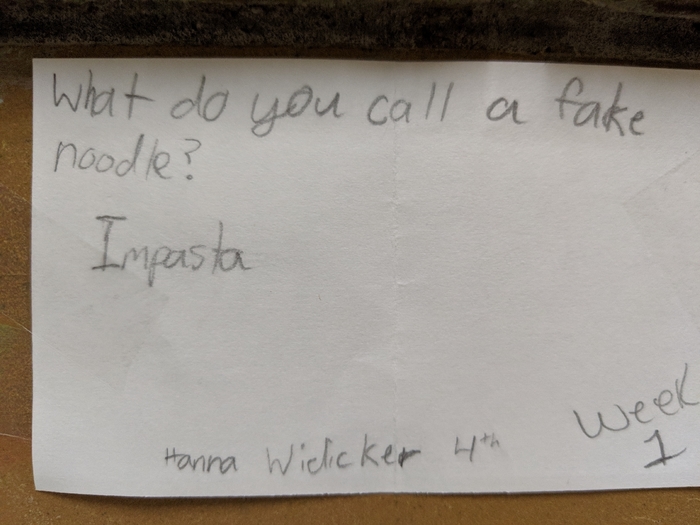 What do you call a fake
noodle?
Impasta
Hanna Widicker 4th
Week
1